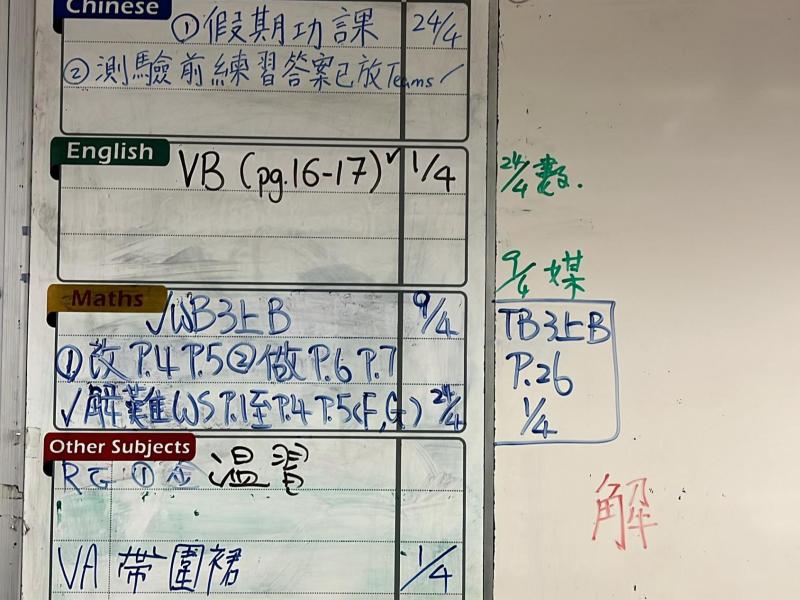 Chinese
①假期功課 24/4
②測驗前練習答案已放Teams
English
VB (pg.16-17) 1/4
24/4 數.
9/4 媒
Maths
√WB3上B 9/4
①改P.4 P.5②做P.6 P.7
√解難WS P.1至P.4 P.5(F,G) 24/4
TB3上B
P.26
1/4
Other Subjects
溫習
VA 帶圍裙 1/4
解